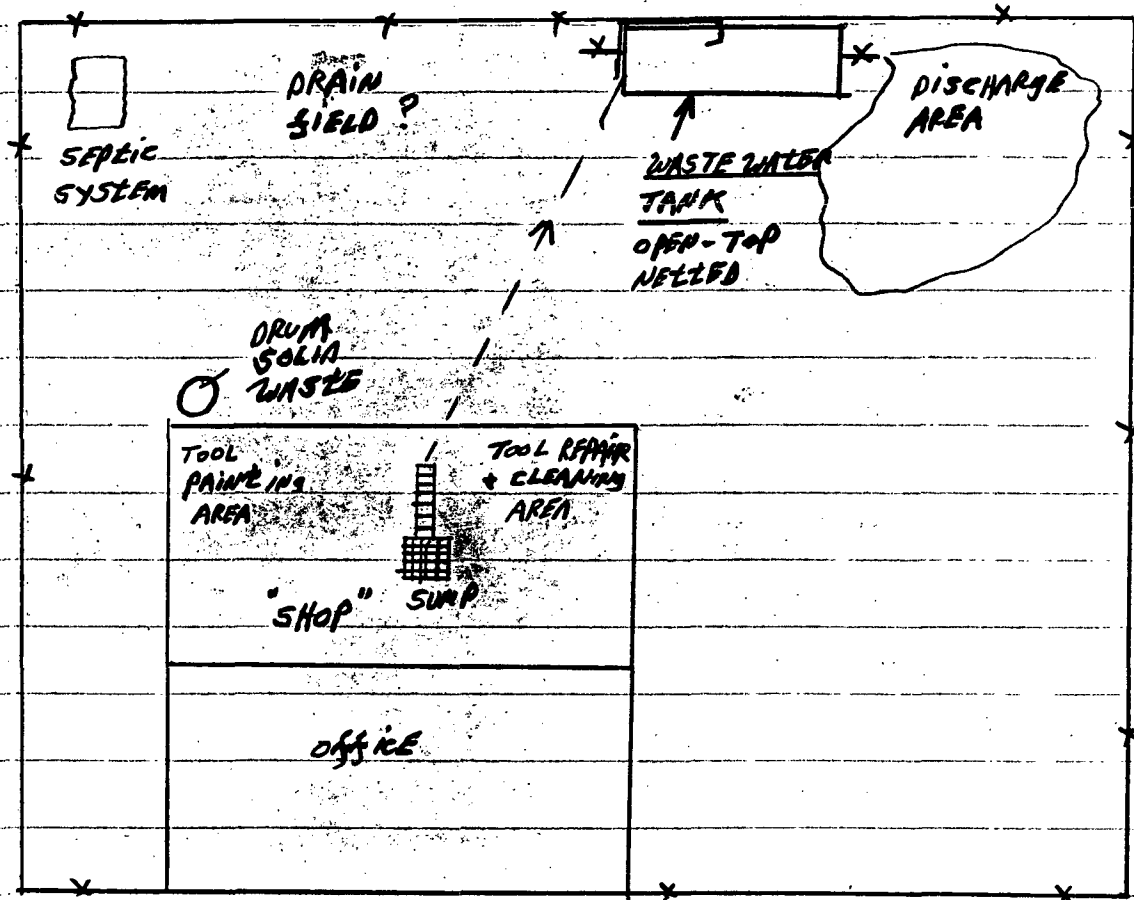 DRAIN
FIELD ?
SEPTIC
SYSTEM
DISCHARGE
AREA
WASTE WATER
TANK
OPEN-TOP
NETTED
DRUM
SOLID
WASTE
TOOL
PAINTING
AREA
TOOL REPAIR
+ CLEANING
AREA
"SHOP"
SUMP
OFFICE